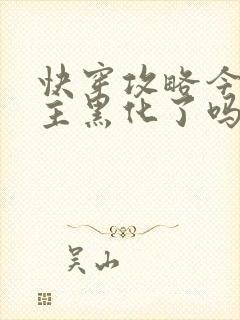 快穿攻略今
主黑化了吗
吴山